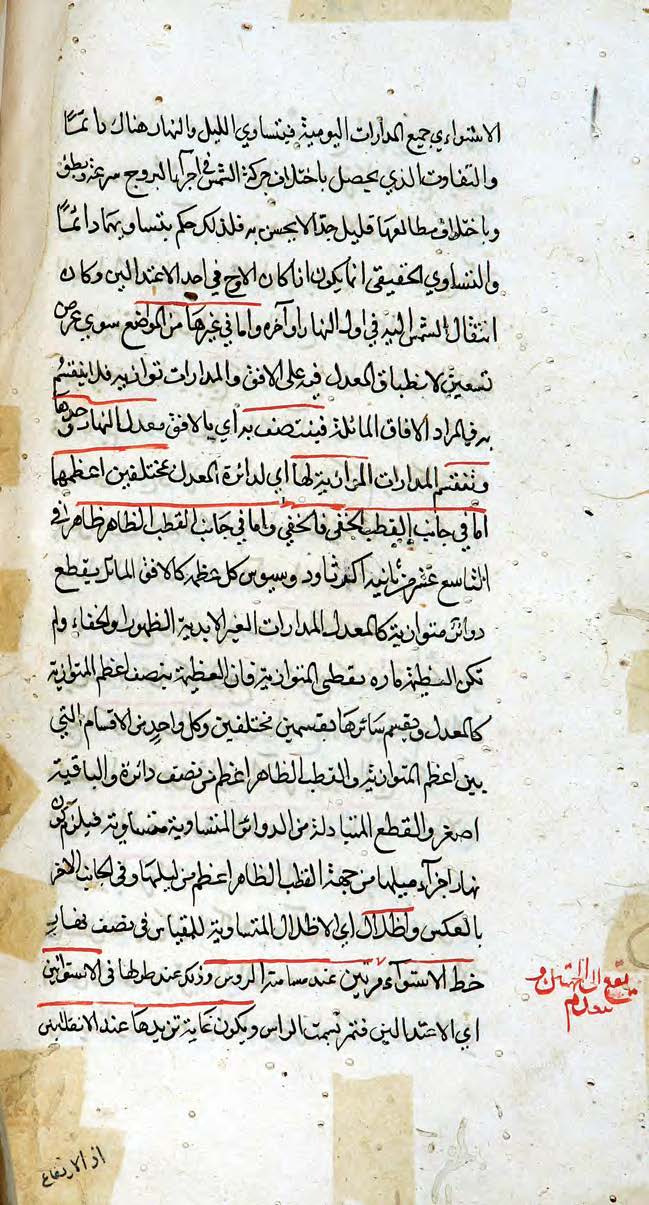 الاستواءي جميع المدارات اليومية فيتساوي الليل والنهار هناك دائمًا
والتفاوت الذي يحصل باختلاف حركة الشمس في اجزآء البروج سرعة وبطؤ
وباختلاف مطالعها قليل جدّا لا يحس به فلذلك حكم بتساويهما دائمًا
والتساوي الحقيقي انما يكون اذا كان الاوج في احد الاعتدالين وكان
انتقال الشمس اليه في اول النهار او آخره واما في غيرها من المواضع سوي عرض
تسعين لانطباق المعدل فيه علي الافق والمدارات توازيه فلا ينقسم
به فالمراد الافاق المائلة فينتصف به أي بالافق معدل النهار وحدها
وتنقسم المدارات الموازية لها اي لدائرة المعدل بمختلفين اعظمهما
اما في جانب القطب الخفي فالخفي واما في جانب القطب الظاهر فالظاهر
التاسع عشر من ثانية اكر ثاودوسيوس كل عظيمة كالافق المائل يقطع
دوائر متوازية كالمعدل والمدارات الغير الابدية الظهور او الخفاء ولم
تكن العظيمة ماره بقطبي المتوازية فان العظيمة ينصف اعظم المتوازية
كالمعدل ويقسم سائرها بقسمين مختلفين وكل واحد من الاقسام التي
بين اعظم المتوازية والقطب الظاهر اعظم من نصف دائرة والباقية
اصغر والقطع المتبادلة من الدوائر المتساوية متساوية فيلزم كون
نهار اجزآء ميلها من جهة القطب الظاهر اعظم من ليلها وفي الجانب الاخر
بالعكس واظلال اي الاظلال المتساوية للمقياس في نصف نهار
خط الاستوآء مرتين عند مسامتة الروس وذلك عند حلولها في الاستوائين
اي الاعتدالين فتمر بسمت الراس ويكون غاية تزيدها عند الانقلابين
يقع الي الجهتين و
تعدم
از الارتفاع